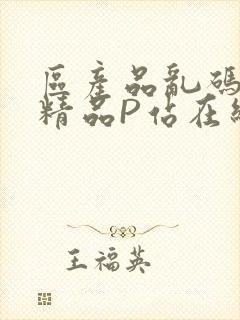 區產品亂碼
精品P佔在線
王福英